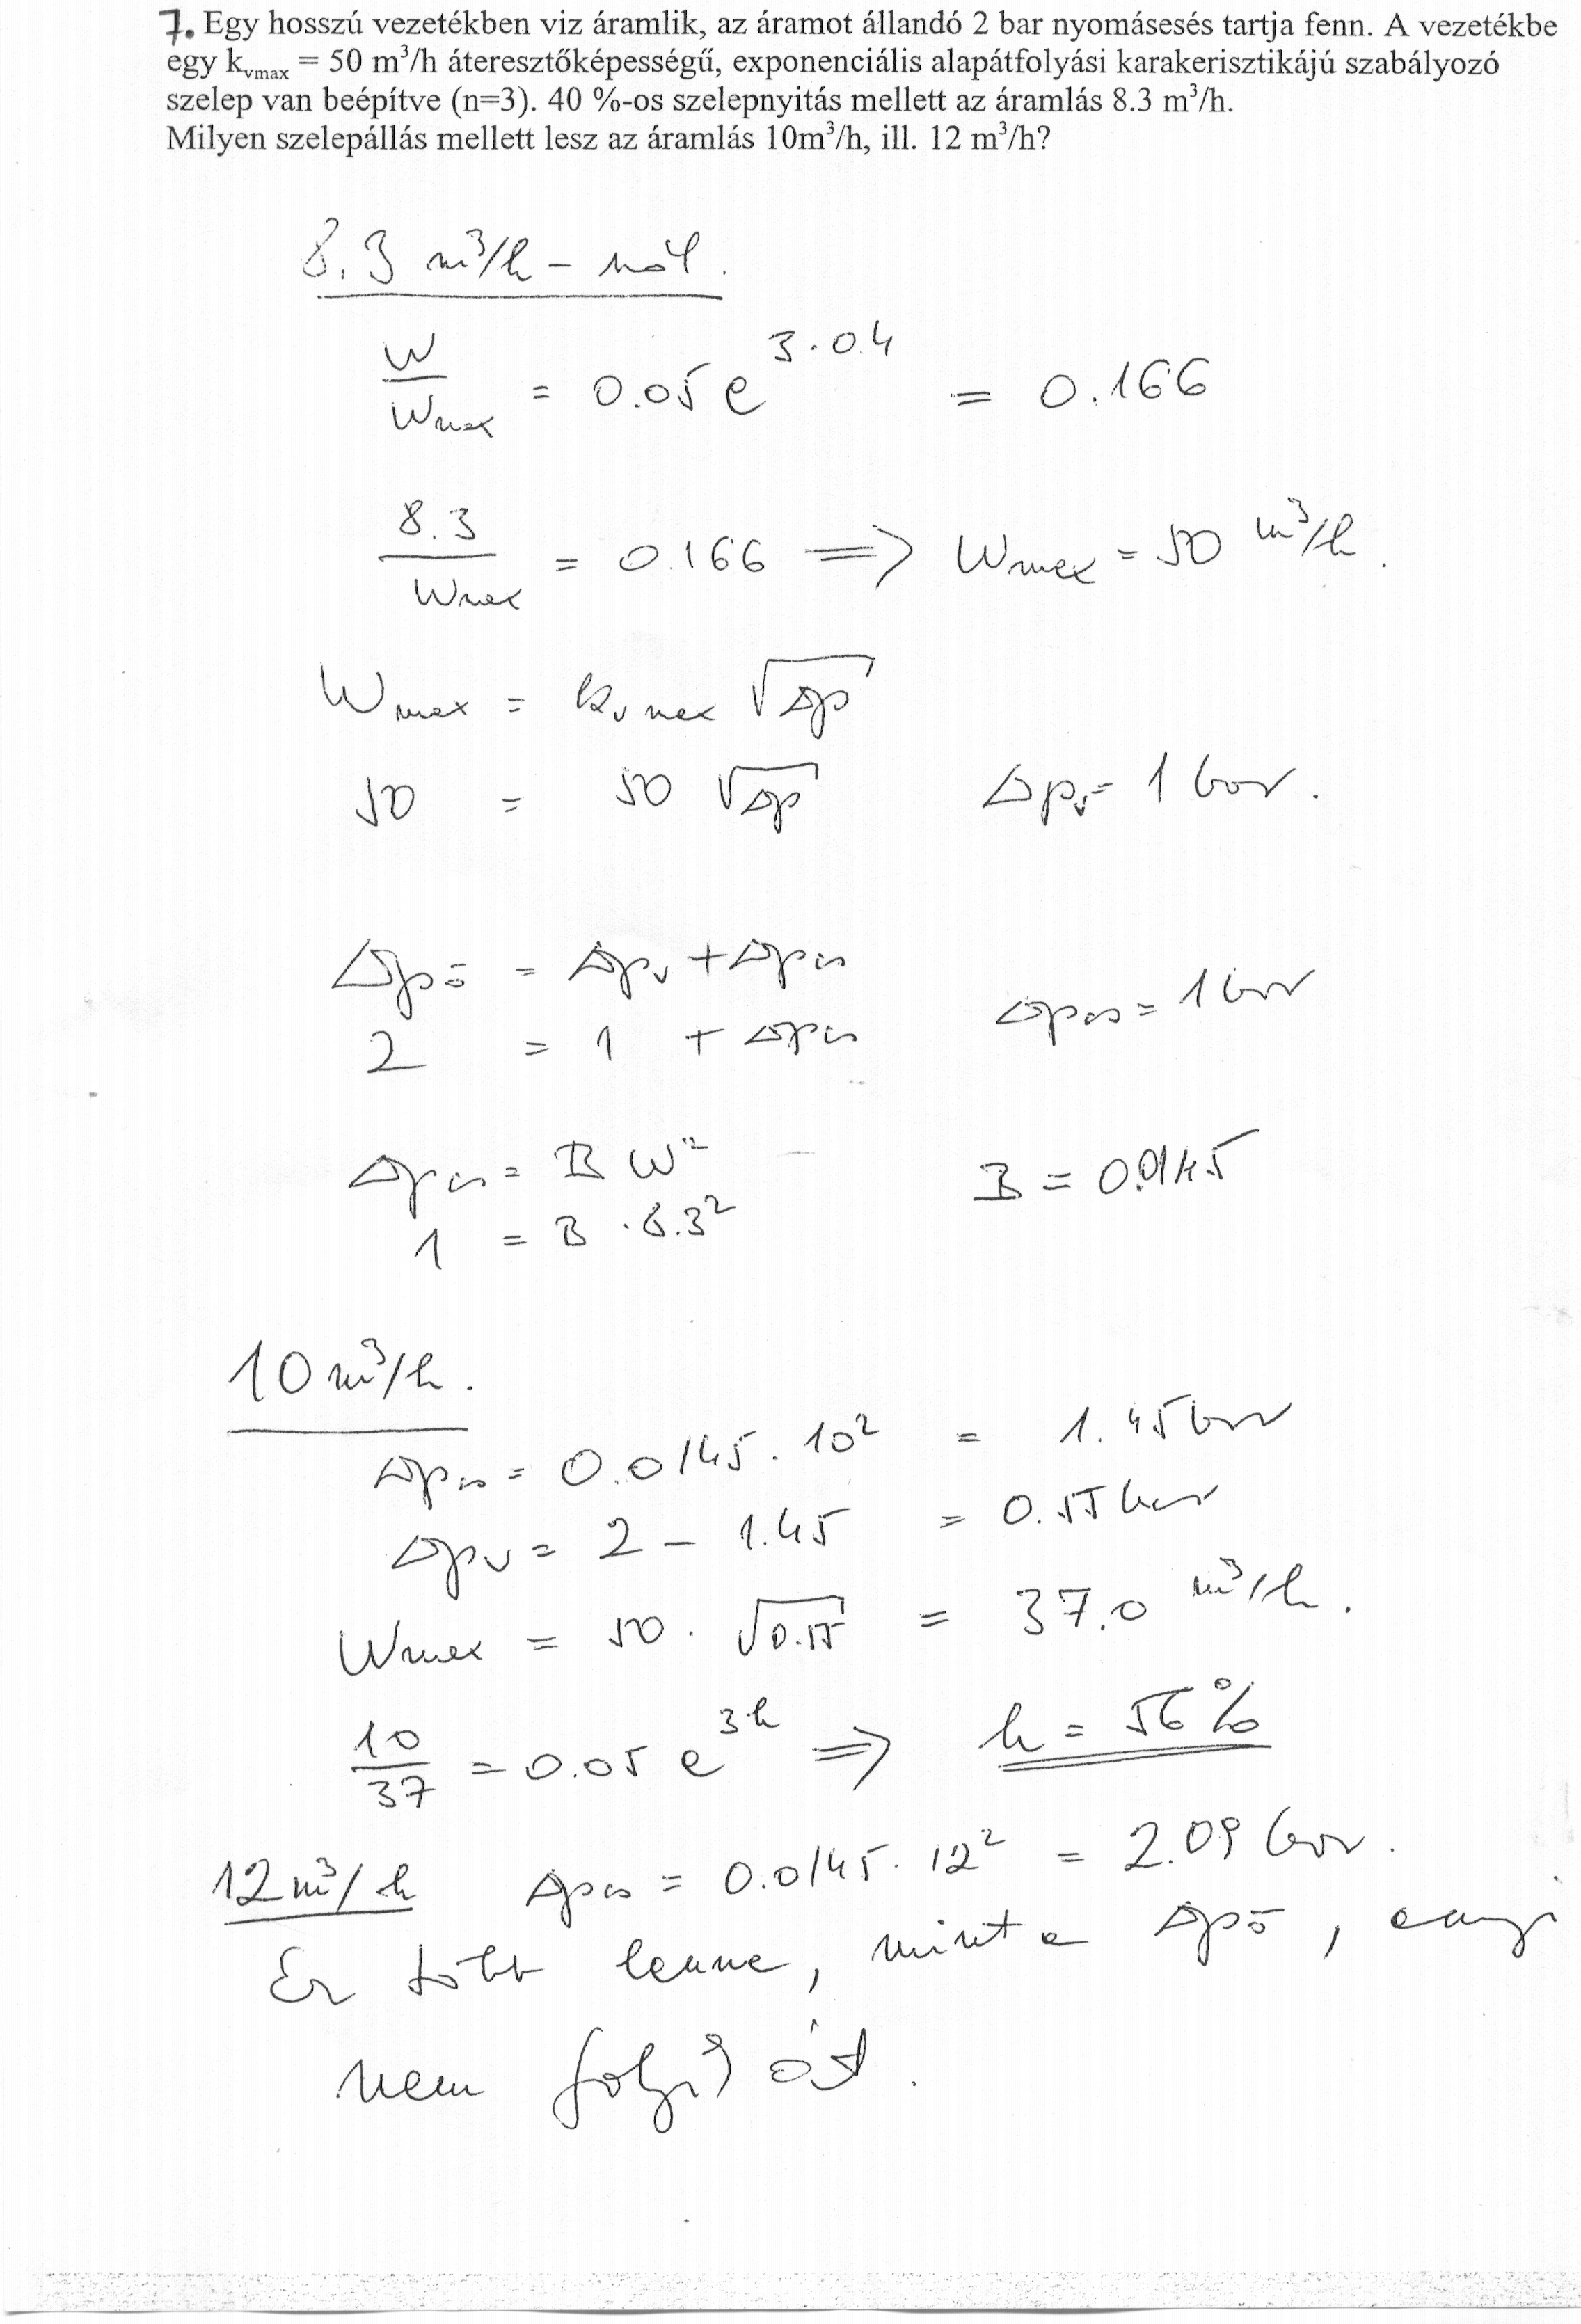 7. Egy hosszú vezetékben viz áramlik, az áramot állandó 2 bar nyomásesés tartja fenn. A vezetékbe
egy kvmax = 50 m³/h áteresztőképességű, exponenciális alapátfolyási karakerisztikájú szabályozó
szelep van beépítve (n=3). 40 %-os szelepnyitás mellett az áramlás 8.3 m³/h.
Milyen szelepállás mellett lesz az áramlás 10m³/h, ill. 12 m³/h?
8.3 m³/h - nál.
W/Wmax = 0.05 e^3·0.4 = 0.166
8.3/Wmax = 0.166 => Wmax = 50 m³/h.
Wmax = kvmax √Δp
50 = 50 √Δp Δpv = 1 bar.
Δpö = Δpv + Δpcs
2 = 1 + Δpcs Δpcs = 1 bar
Δpcs = B W² B = 0.0145
1 = B · 8.3²
10 m³/h.
Δpcs = 0.0145 · 10² = 1.45 bar
Δpv = 2 - 1.45 = 0.55 bar
Wmax = 50 · √0.55 = 37.0 m³/h.
10/37 = 0.05 e^3h => h = 56 %
12 m³/h Δpcs = 0.0145 · 12² = 2.09 bar.
Ez több lenne, mint a Δpö, ennyi
nem folyik át.